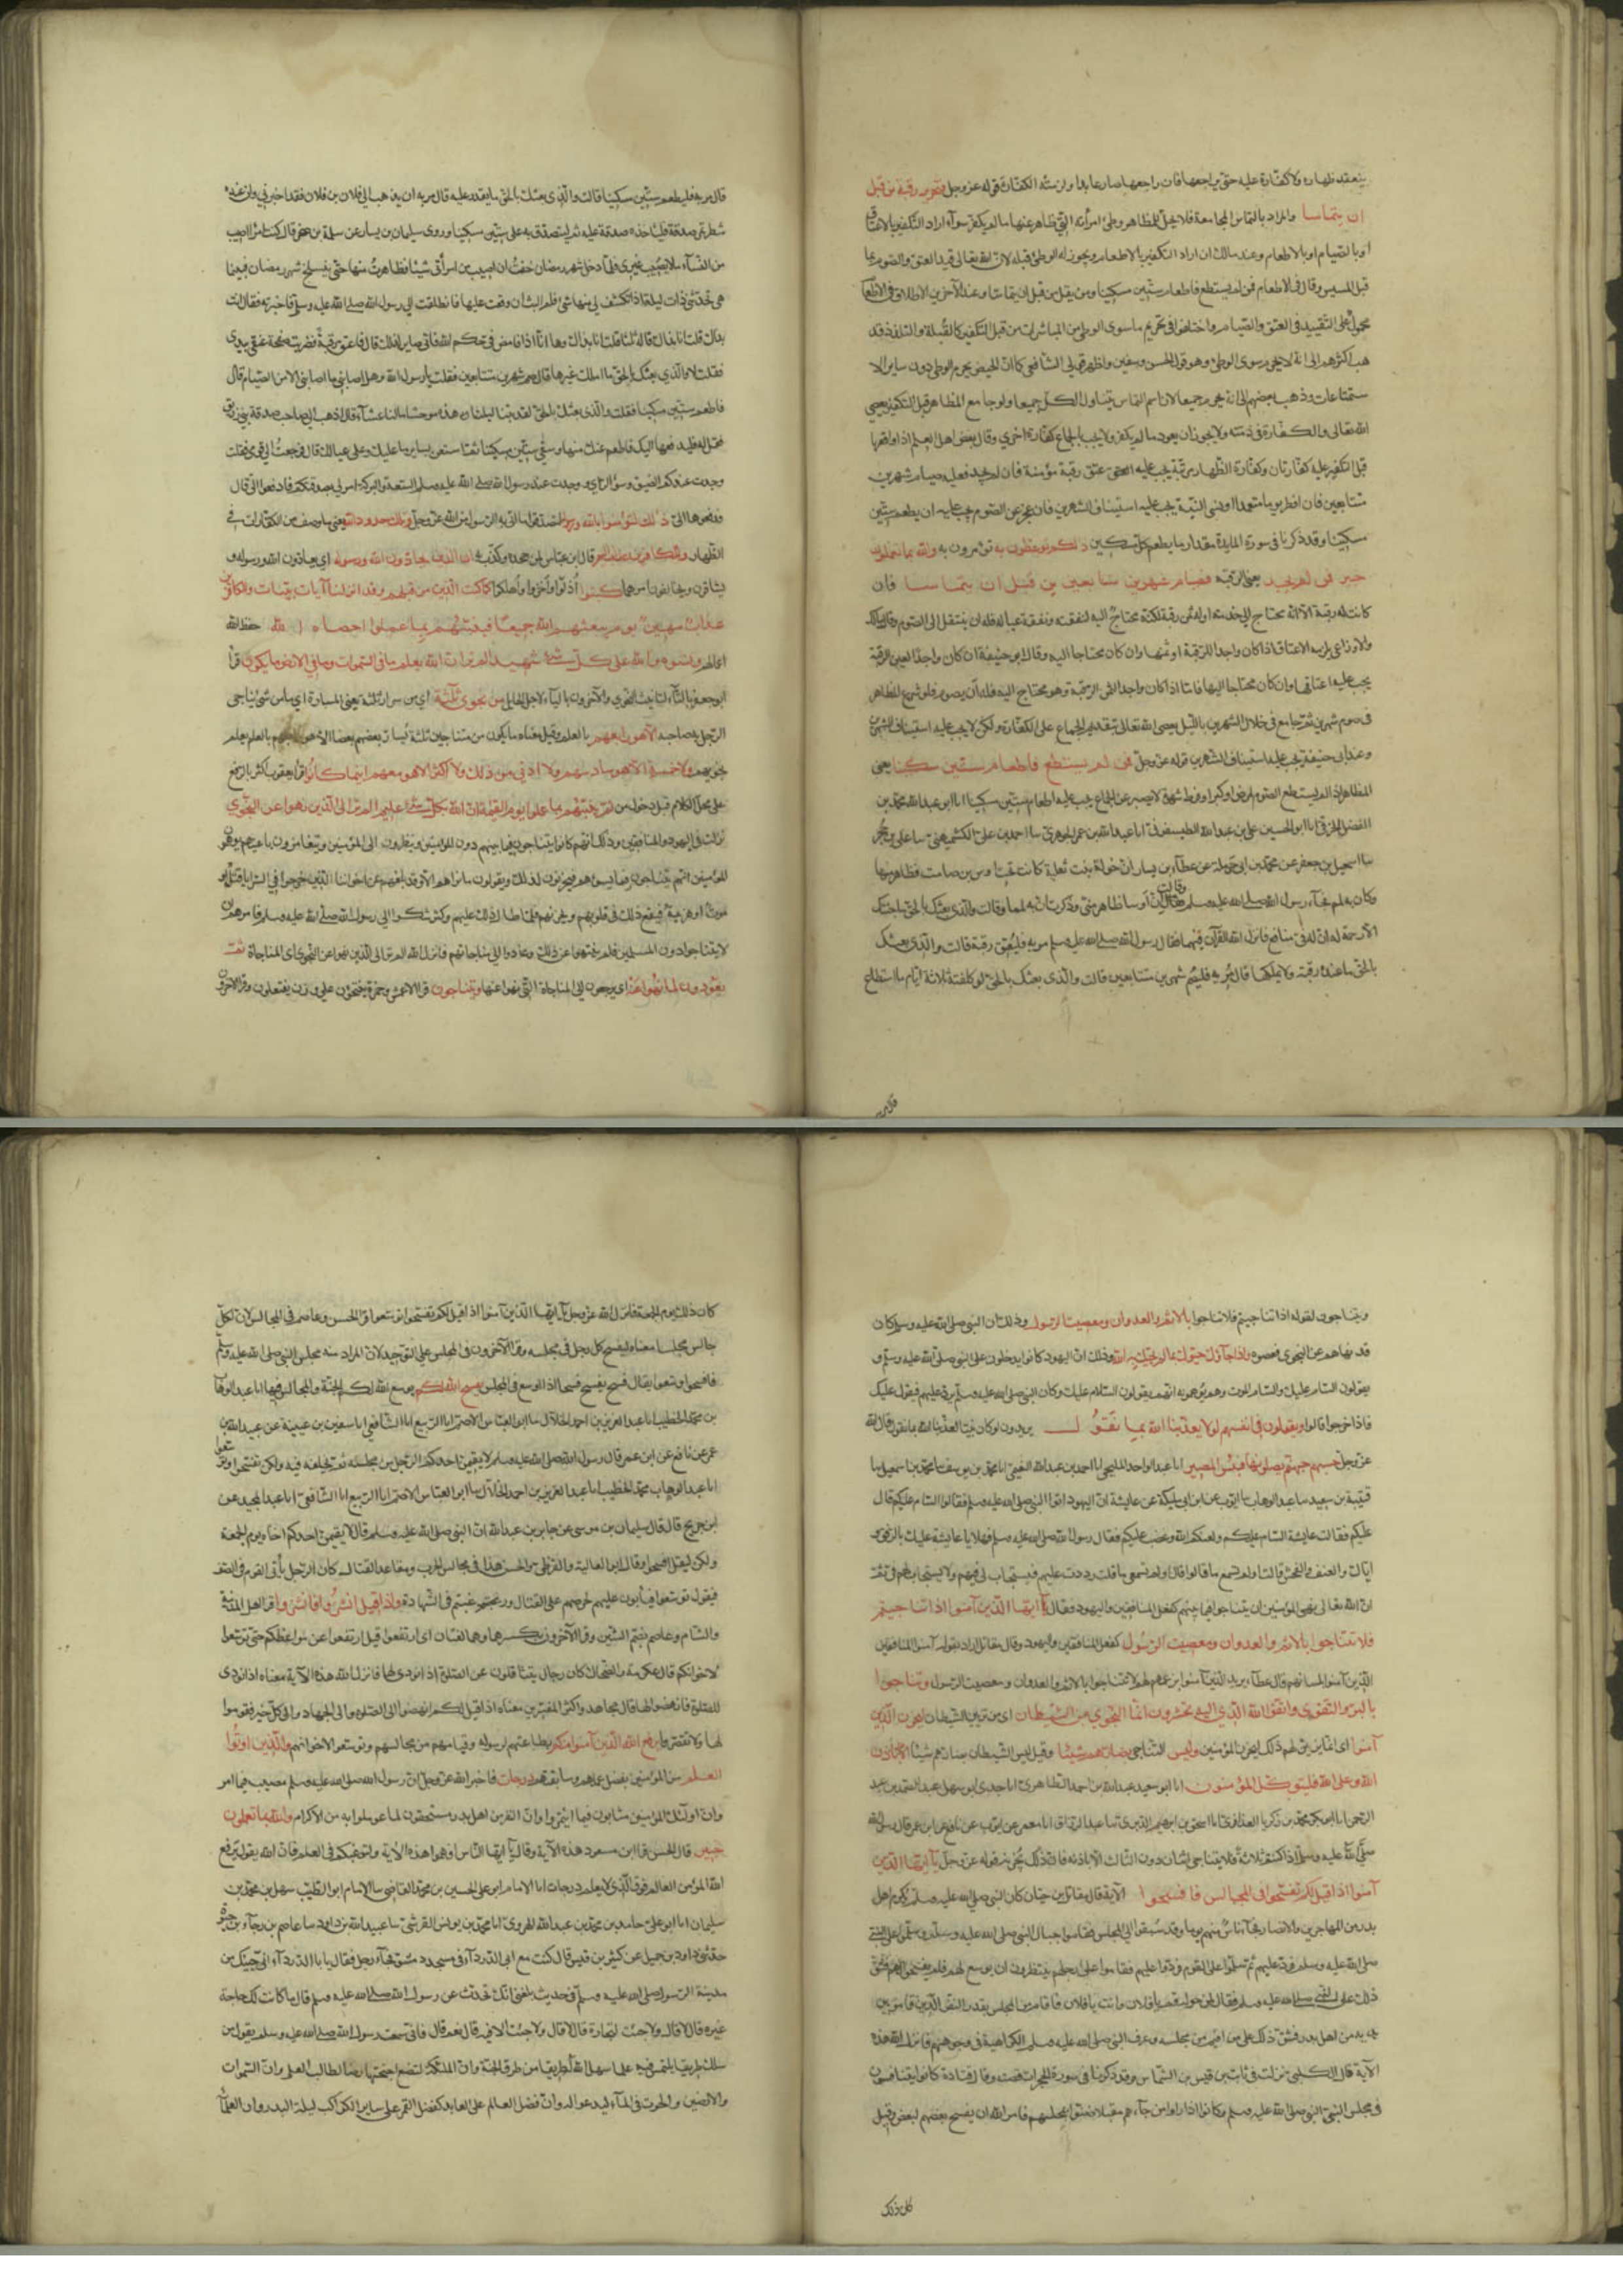 ينعقد ظهاره ولا كفارة عليه حتى يراجعها فان راجعها صار عايدا ولزمته الكفارة قوله عز وجل فتحرير رقبة من قبل
ان يتماسا والمراد بالتماس المجامعة فلا يحل للمظاهر وطئ امرأته التي ظاهر عنها ما لم يكفر سواء اراد التكفير بالاعتاق
او بالصيام او بالاطعام وعند مالك ان اراد التكفير بالاطعام ويجوز له الوطئ قبله لان الله تعالى قيد العتق والصوم بما
قبل المسيس وقال في الاطعام فمن لم يستطع فاطعام ستين مسكينا ولم يقل من قبل ان يتماسا وعند الآخرين الاطلاق في الاطعام
محمول على التقييد في العتق والصيام واختلفوا في تحريم ما سوى الوطئ من المباشرات من قبل التكفير كالقبلة والتلذذ فذ
هب اكثرهم الى انه لا يحرم سوى الوطئ وهو قول الحسن وسفين واظهر قولي الشافعي كما ان الحيض يحرم الوطئ دون ساير الا
ستمتاعات وذهب بعضهم الى انه يحرم جميعا لان اسم التماس يتناول الكل جميعا ولو جامع المظاهر قبل التكفير يعصي
الله تعالى والكفارة في ذمته ولا يجوز ان يعود ما لم يكفر ولا يجب بالجماع كفارة اخرى وقال بعض اهل العلم اذا واقعها
قبل التكفير عليه كفارتان وكفارة الظهار مرتبة يجب عليه عتق رقبة مؤمنة فان لم يجد فعليه صيام شهرين
متتابعين فان افطر يوما متعمدا او نسي النية يجب عليه استيناف الشهرين فان عجز عن الصوم يجب عليه ان يطعم ستين
مسكينا وقد ذكرنا في سورة المايدة مقدار ما يطعم كل مسكين ذلكم توعظون به تؤمرون به والله بما تعملون
خبير فمن لم يجد يعني الرقبة فصيام شهرين متتابعين من قبل ان يتماسا فان
كانت له رقبة الا انه محتاج الى خدمته او له ثمن رقبة لكنه محتاج اليه لنفقته ونفقة عياله فله ان ينتقل الى الصوم وقال مالك
والاوزاعي يلزمه الاعتاق اذا كان واجدا للرقبة او ثمنها وان كان محتاجا اليه وقال ابو حنيفة ان كان واجدا لعين الرقبة
يجب عليه اعتاقها وان كان محتاجا اليها فاما اذا كان واجدا لثمن الرقبة وهو محتاج اليه فله ان يصوم فلو شرع المظاهر
في صوم شهرين ثم جامع في خلال الشهرين بالليل يعصي الله تعالى بتقديم الجماع على الكفارة ولكن لا يجب عليه استيناف الشهرين
وعند ابي حنيفة يجب عليه استيناف الشهرين قوله عز وجل فمن لم يستطع فاطعام ستين مسكينا يعني
المظاهر اذا لم يستطع الصوم لمرض او كبر او فرط شهوة لا يصبر عن الجماع يجب عليه اطعام ستين مسكينا انا ابو عبد الله محمد بن
الفضل الخرقي انا ابو الحسين علي بن عبد الله الطيسفوني انا عبد الله بن عمر الجوهري نا احمد بن علي الكشميهني نا علي بن حجر
نا اسمعيل بن جعفر عن محمد بن ابي حرملة عن عطاء بن يسار ان خولة بنت ثعلبة كانت تحت اوس بن صامت فظاهر منها
وكان به لمم فجاءت رسول الله صلى الله عليه وسلم فقالت ان اوسا ظاهر مني وذكرت ان به لمما وقالت والذي بعثك بالحق ما جئتك
الا رحمة له ان له في منافع فانزل الله القرآن فيهما فقال رسول الله صلى الله عليه وسلم مريه فليعتق رقبة قالت والذي بعثك
بالحق ما عنده رقبة ولا يملكها قال مريه فليصم شهرين متتابعين قالت والذي بعثك بالحق لو كلفته ثلاثة ايام ما استطاع
قال مريه فليطعم ستين مسكينا قالت والذي بعثك بالحق ما يقدر عليه قال مريه ان يذهب الى فلان بن فلان فقد اخبرني ان عنده
شطر تمر صدقة فلياخذه صدقة عليه ثم ليتصدق به على ستين مسكينا وروى سليمان بن يسار عن سلمة بن صخر قال كنت امرأ اصيب
من النساء ما لا يصيب غيري فلما دخل شهر رمضان خفت ان اصيب من امرأتي شيئا فظاهرت منها حتى ينسلخ شهر رمضان فبينا
هي تحدثني ذات ليلة اذ انكشف لي منها شئ فلم البث ان وقعت عليها فانطلقت الى رسول الله صلى الله عليه وسلم فاخبرته فقال انت
بذاك قلت انا بذاك قاله ثلثا قلت انا بذاك وها انا ذا فامض في حكم الله فاني صابر لذلك قال فاعتق رقبة فضربت صفحة عنقي بيدي
فقلت لا والذي بعثك بالحق ما املك غيرها قال صم شهرين متتابعين فقلت يا رسول الله وهل اصابني ما اصابني الا من الصيام قال
فاطعم ستين مسكينا فقلت والذي بعثك بالحق لقد بتنا ليلتنا هذه وحشا ما لنا عشاء قال اذهب الى صاحب صدقة بني زريق
فقل له فليدفعها اليك فاطعم عنك منها وسقا ستين مسكينا ثم استعن بسايره عليك وعلى عيالك قال فرجعت الى قومي فقلت
وجدت عندكم الضيق وسوء الرأي ووجدت عند رسول الله صلى الله عليه وسلم السعة والبركة امر لي بصدقتكم فادفعوها الي قال
فدفعوها الي ذلك لتؤمنوا بالله ورسوله لتصدقوا ما اتى به الرسول من الله عز وجل وتلك حدود الله يعني ما وصف من الكفارات في
الظهار وللكافرين عذاب اليم قال ابن عباس لمن جحده وكذب به ان الذين يحادون الله ورسوله اي يعادون الله ورسوله و
يشاقون ويخالفون امرهما كبتوا اذلوا واخزوا واهلكوا كما كبت الذين من قبلهم وقد انزلنا آيات بينات وللكافرين
عذاب مهين يوم يبعثهم الله جميعا فينبئهم بما عملوا احصاه الله حفظ الله
اعمالهم ونسوه والله على كل شئ شهيد الم تر ان الله يعلم ما في السموات وما في الارض ما يكون قرأ
ابو جعفر بالتاء لتانيث النجوى والآخرون بالياء لاجل الحايل من نجوى ثلثة اي من سرار ثلثة يعني المسارة اي ما من شئ يناجي
الرجل به صاحبه الا هو رابعهم بالعلم وقيل معناه ما يكون من متناجين ثلثة يسار بعضهم بعضا الا هو رابعهم بالعلم يعلم
نجويهم ولا خمسة الا هو سادسهم ولا ادنى من ذلك ولا اكثر الا هو معهم اينما كانوا قرأ يعقوب اكثر بالرفع
على محل الكلام قبل دخول من ثم ينبئهم بما عملوا يوم القيمة ان الله بكل شئ عليم الم تر الى الذين نهوا عن النجوى
نزلت في اليهود والمنافقين وذلك انهم كانوا يتناجون فيما بينهم دون المؤمنين وينظرون الى المؤمنين ويتغامزون باعينهم يوهمون
المؤمنين انهم يتناجون فيما يسوءهم فيحزنون لذلك ويقولون ما نراهم الا وقد بلغهم عن اخواننا الذين خرجوا في السرايا قتل او
موت او هزيمة فيقع ذلك في قلوبهم ويحزنهم فلما طال ذلك عليهم وكثر شكوا الى رسول الله صلى الله عليه وسلم فامرهم ان
لا يتناجوا دون المسلمين فلم ينتهوا عن ذلك وعادوا الى مناجاتهم فانزل الله الم تر الى الذين نهوا عن النجوى اي المناجاة ثم
يعودون لما نهوا عنه اي يرجعون الى المناجاة التي نهوا عنها ويتناجون قرأ الاعمش وحمزة وينتجون على وزن يفتعلون وقرأ الآخرون
ويتناجون لقوله اذا تناجيتم فلا تتناجوا بالاثم والعدوان ومعصيت الرسول وذلك ان النبي صلى الله عليه وسلم كان
قد نهاهم عن النجوى فعصوه واذا جاؤك حيوك بما لم يحيك به الله وذلك ان اليهود كانوا يدخلون على النبي صلى الله عليه وسلم و
يقولون السام عليك والسام الموت وهم يوهمونه انهم يقولون السلام عليك وكان النبي صلى الله عليه وسلم يرد عليهم فيقول عليكم
فاذا خرجوا قالوا ويقولون في انفسهم لولا يعذبنا الله بما نقول يريدون لو كان نبيا لعذبنا الله بما نقول قال الله
عز وجل حسبهم جهنم يصلونها فبئس المصير انا عبد الواحد المليحي انا احمد بن عبد الله النعيمي انا محمد بن يوسف نا محمد بن اسمعيل نا
قتيبة بن سعيد نا عبد الوهاب نا ايوب عن ابن ابي مليكة عن عايشة ان اليهود اتوا النبي صلى الله عليه وسلم فقالوا السام عليكم قال
عليكم فقالت عايشة السام عليكم ولعنكم الله وغضب عليكم فقال رسول الله صلى الله عليه وسلم مهلا يا عايشة عليك بالرفق و
اياك والعنف والفحش قالت اولم تسمع ما قالوا قال اولم تسمعي ما قلت رددت عليهم فيستجاب لي فيهم ولا يستجاب لهم في ثم
ان الله تعالى نهى المؤمنين ان يتناجوا فيما بينهم كفعل المنافقين واليهود فقال يا ايها الذين آمنوا اذا تناجيتم
فلا تتناجوا بالاثم والعدوان ومعصيت الرسول كفعل المنافقين واليهود وقال مقاتل اراد بقوله آمنوا المنافقين
الذين آمنوا بلسانهم قال عطاء يريد الذين آمنوا بزعمهم قال لهم لا تتناجوا بالاثم والعدوان ومعصيت الرسول وتناجوا
بالبر والتقوى واتقوا الله الذي اليه تحشرون انما النجوى من الشيطان اي من تزيين الشيطان ليحزن الذين
آمنوا اي انما يزين لهم ذلك ليحزن المؤمنين وليس التناجي بضارهم شيئا وقيل ليس الشيطان بضارهم شيئا الا باذن
الله وعلى الله فليتوكل المؤمنون انا ابو سعيد عبد الله بن احمد الطاهري انا جدي ابو سهل عبد الصمد بن عبد
الرحمن انا ابو بكر محمد بن زكريا العذافري انا اسحق بن ابرهيم الدبري نا عبد الرزاق انا معمر عن ايوب عن نافع عن ابن عمر قال رسول الله
صلى الله عليه وسلم اذا كنتم ثلاثة فلا يتناجى اثنان دون الثالث الا باذنه فان ذلك يحزنه قوله عز وجل يا ايها الذين
آمنوا اذا قيل لكم تفسحوا في المجالس فافسحوا الآية قال مقاتل بن حيان كان النبي صلى الله عليه وسلم يكرم اهل
بدر من المهاجرين والانصار فجاء ناس منهم يوما وقد سبقوا الى المجلس فقاموا حيال النبي صلى الله عليه وسلم وسلموا على النبي
صلى الله عليه وسلم فرد عليهم ثم سلموا على القوم فردوا عليهم فقاموا على ارجلهم ينتظرون ان يوسع لهم فلم يفسحوا لهم فشق
ذلك على النبي صلى الله عليه وسلم فقال لمن حوله قم يا فلان وانت يا فلان فاقام من المجلس بقدر النفر الذين قاموا بين
يديه من اهل بدر فشق ذلك على من اقيم من مجلسه وعرف النبي صلى الله عليه وسلم الكراهية في وجوههم فانزل الله هذه
الآية قال الكلبي نزلت في ثابت بن قيس بن الشماس وقد ذكرنا في سورة الحجرات قصته وقال قتادة كانوا يتنافسون
في مجلس النبي صلى الله عليه وسلم وكانوا اذا راوا من جاءهم مقبلا ضنوا بمجلسهم فامر الله ان يفسح بعضهم لبعض وقيل
كان ذلك
كان ذلك يوم الجمعة فانزل الله عز وجل يا ايها الذين آمنوا اذا قيل لكم تفسحوا اي توسعوا قرأ الحسن وعاصم في المجالس لان لكل
جالس مجلسا معناه ليفسح كل رجل في مجلسه وقرأ الآخرون في المجلس على التوحيد لان المراد منه مجلس النبي صلى الله عليه وسلم
فافسحوا وسعوا يقال فسح يفسح فسحا اذا وسع في المجلس يفسح الله لكم يوسع الله لكم الجنة والمجالس فيها انا عبد الوهاب
بن محمد الخطيب انا عبد العزيز بن احمد الخلال نا ابو العباس الاصم انا الربيع انا الشافعي انا سفين بن عيينة عن عبيد الله بن
عمر عن نافع عن ابن عمر قال رسول الله صلى الله عليه وسلم لا يقيمن احدكم الرجل من مجلسه ثم يخلفه فيه ولكن تفسحوا وتوسعوا
انا عبد الوهاب بن محمد الخطيب انا عبد العزيز بن احمد الخلال نا ابو العباس الاصم انا الربيع انا الشافعي انا عبد المجيد عن
ابن جريج قال قال سليمان بن موسى عن جابر بن عبد الله ان النبي صلى الله عليه وسلم قال لا يقيمن احدكم اخاه يوم الجمعة
ولكن ليقل افسحوا وقال ابو العالية والقرظي والحسن هذا في مجالس الحرب ومقاعد القتال كان الرجل يأتي القوم في الصف
فيقول توسعوا فيأبون عليهم لحرصهم على القتال ورغبتهم في الشهادة واذا قيل انشزوا فانشزوا قرأ اهل المدينة
والشام وعاصم بضم الشين وقرأ الآخرون بكسرها وهما لغتان اي ارتفعوا قيل ارتفعوا عن مواضعكم حتى توسعوا
لاخوانكم قال عكرمة والضحاك كان رجال يتثاقلون عن الصلوة اذا نودي لها فانزل الله هذه الآية معناه اذا نودي
للصلوة فانهضوا لها قال مجاهد واكثر المفسرين معناه اذا قيل لكم انهضوا الى الصلوة والى الجهاد والى كل خير فقوموا
لها ولا تقصروا يرفع الله الذين آمنوا منكم بطاعتهم لرسوله وقيامهم من مجالسهم وتوسعهم لاخوانهم والذين اوتوا
العلم من المؤمنين بفضل علمهم وسابقتهم درجات فاخبر الله عز وجل ان رسول الله صلى الله عليه وسلم مصيب فيما امر
وان اولئك المؤمنين مثابون فيما ائتمروا وان النفر من اهل بدر مستحقون لما عوملوا به من الاكرام والله بما تعملون
خبير قال الحسن قرأ ابن مسعود هذه الآية وقال يا ايها الناس افهموا هذه الآية ولترغبكم في العلم فان الله يقول يرفع
الله المؤمن العالم فوق الذي لا يعلم درجات انا الامام ابو علي الحسين بن محمد القاضي نا الامام ابو الطيب سهل بن محمد بن
سليمان انا ابو علي حامد بن محمد بن عبد الله الهروي انا محمد بن يونس القرشي نا عبيد الله بن داود نا عاصم بن رجاء بن حيوة
حدثني داود بن جميل عن كثير بن قيس قال كنت مع ابي الدرداء في مسجد دمشق فجاء رجل فقال يا ابا الدرداء اني جئتك من
مدينة الرسول صلى الله عليه وسلم في حديث بلغني انك تحدث عن رسول الله صلى الله عليه وسلم قال ما كانت لك حاجة
غيره قال لا قال ولا جئت لتجارة قال لا قال ولا جئت الا فيه قال نعم قال فاني سمعت رسول الله صلى الله عليه وسلم يقول من
سلك طريقا يلتمس فيه علما سهل الله له طريقا من طرق الجنة وان الملئكة لتضع اجنحتها رضا لطالب العلم وان السموات
والارضين والحوت في الماء ليدعو له وان فضل العالم على العابد كفضل القمر على ساير الكواكب ليلة البدر وان العلماء